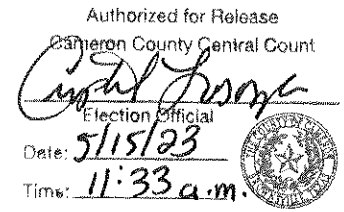 Authorized for Release
Cameron County Central Count
Election Official
Date: 5/15/23
Time: 11:33 a.m.